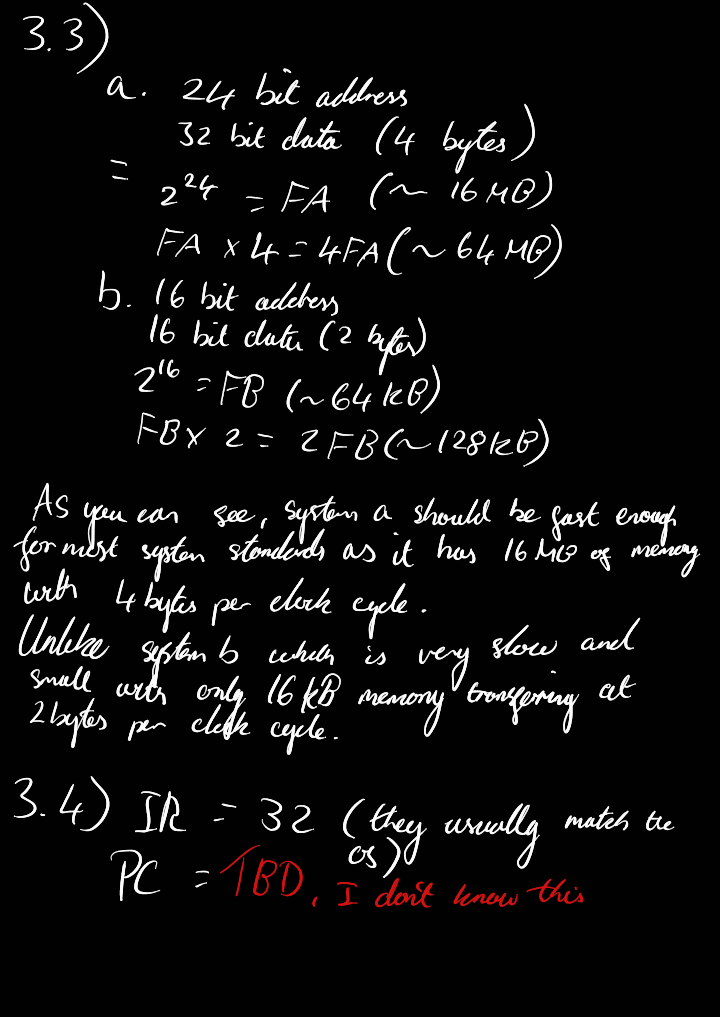 3.3)
a. 24 bit address
32 bit data (4 bytes)
= 2^24 = FA (~ 16 MB)
FA x 4 = 4FA (~ 64 MB)
b. 16 bit address
16 bit data (2 bytes)
2^16 = FB (~64 kB)
FB x 2 = 2FB (~128kB)
As you can see, system a should be fast enough
for most system standards as it has 16 MB of memory
with 4 bytes per clock cycle.
Unlike system b which is very slow and
small with only 16 kB memory transfering at
2 bytes per clock cycle.
3.4) IR = 32 (they usually match the
OS)
PC = TBD, I don't know this